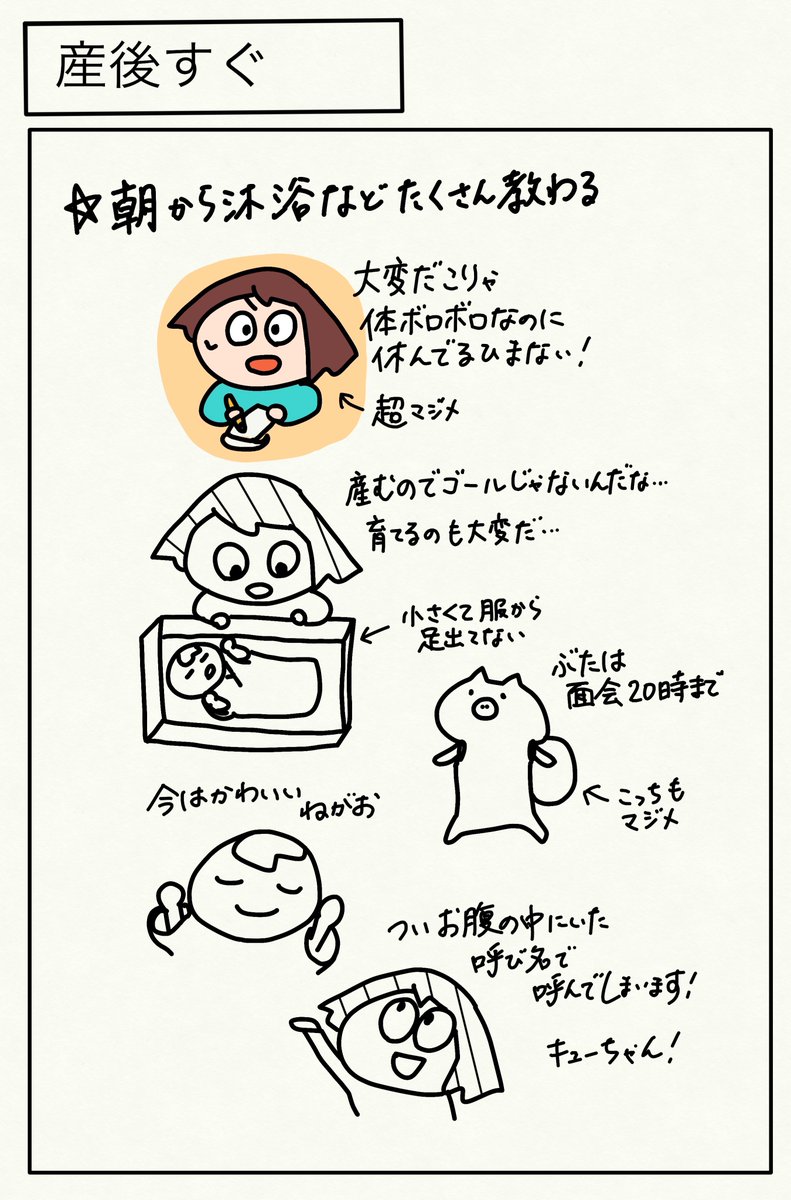 産後すぐ
☆朝から沐浴などたくさん教わる
大変だこりゃ
体ボロボロなのに
休んでるひまない!
←超マジメ
産むのでゴールじゃないんだな…
育てるのも大変だ…
←小さくて服から
足出てない
ぶたは
面会20時まで
←こっちも
マジメ
今はかわいい
ねがお
ついお腹の中にいた
呼び名で
呼んでしまいます!
キューちゃん!